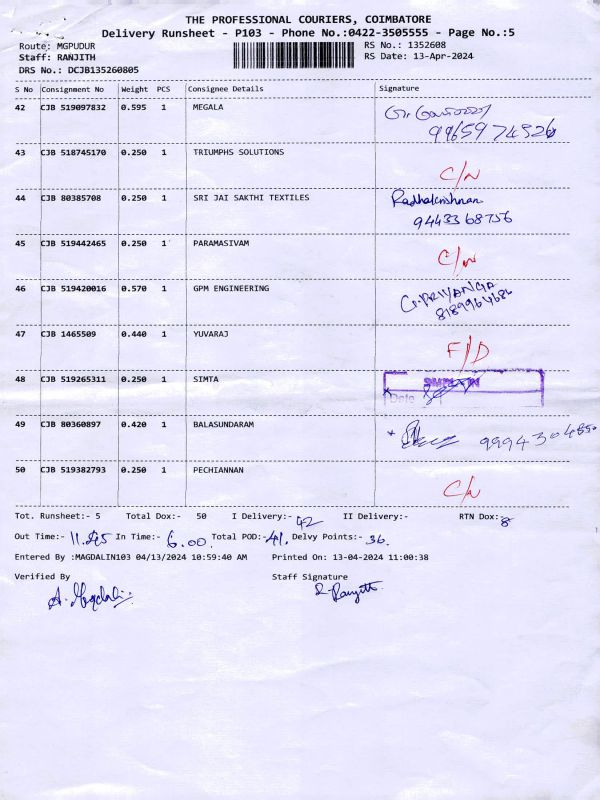 THE PROFESSIONAL COURIERS, COIMBATORE
Delivery Runsheet - P103 - Phone No.:0422-3505555 - Page No.:5
Route: MGPUDUR
RS No.: 1352608
Staff: RANJITH
RS Date: 13-Apr-2024
DRS No.: DCJB135260805
S No Consignment No Weight PCS Consignee Details Signature
42 CJB 519097832 0.595 1 MEGALA
9965974326
43 CJB 518745170 0.250 1 TRIUMPHS SOLUTIONS
C/N
44 CJB 80385708 0.250 1 SRI JAI SAKTHI TEXTILES Radhakrishnan
9443368756
45 CJB 519442465 0.250 1 PARAMASIVAM
C/N
46 CJB 519420016 0.570 1 GPM ENGINEERING G.PRIYANGA
8189964686
47 CJB 1465509 0.440 1 YUVARAJ
F/D
48 CJB 519265311 0.250 1 SIMTA
Date
49 CJB 80360897 0.420 1 BALASUNDARAM
9994304850
50 CJB 519382793 0.250 1 PECHIANNAN
C/N
Tot. Runsheet:- 5 Total Dox:- 50 I Delivery:- 42 II Delivery:- RTN Dox:- 8
Out Time:- 11.45 In Time:- 6.00 Total POD:- 41. Delvy Points:- 36.
Entered By :MAGDALIN103 04/13/2024 10:59:40 AM Printed On: 13-04-2024 11:00:38
Verified By Staff Signature